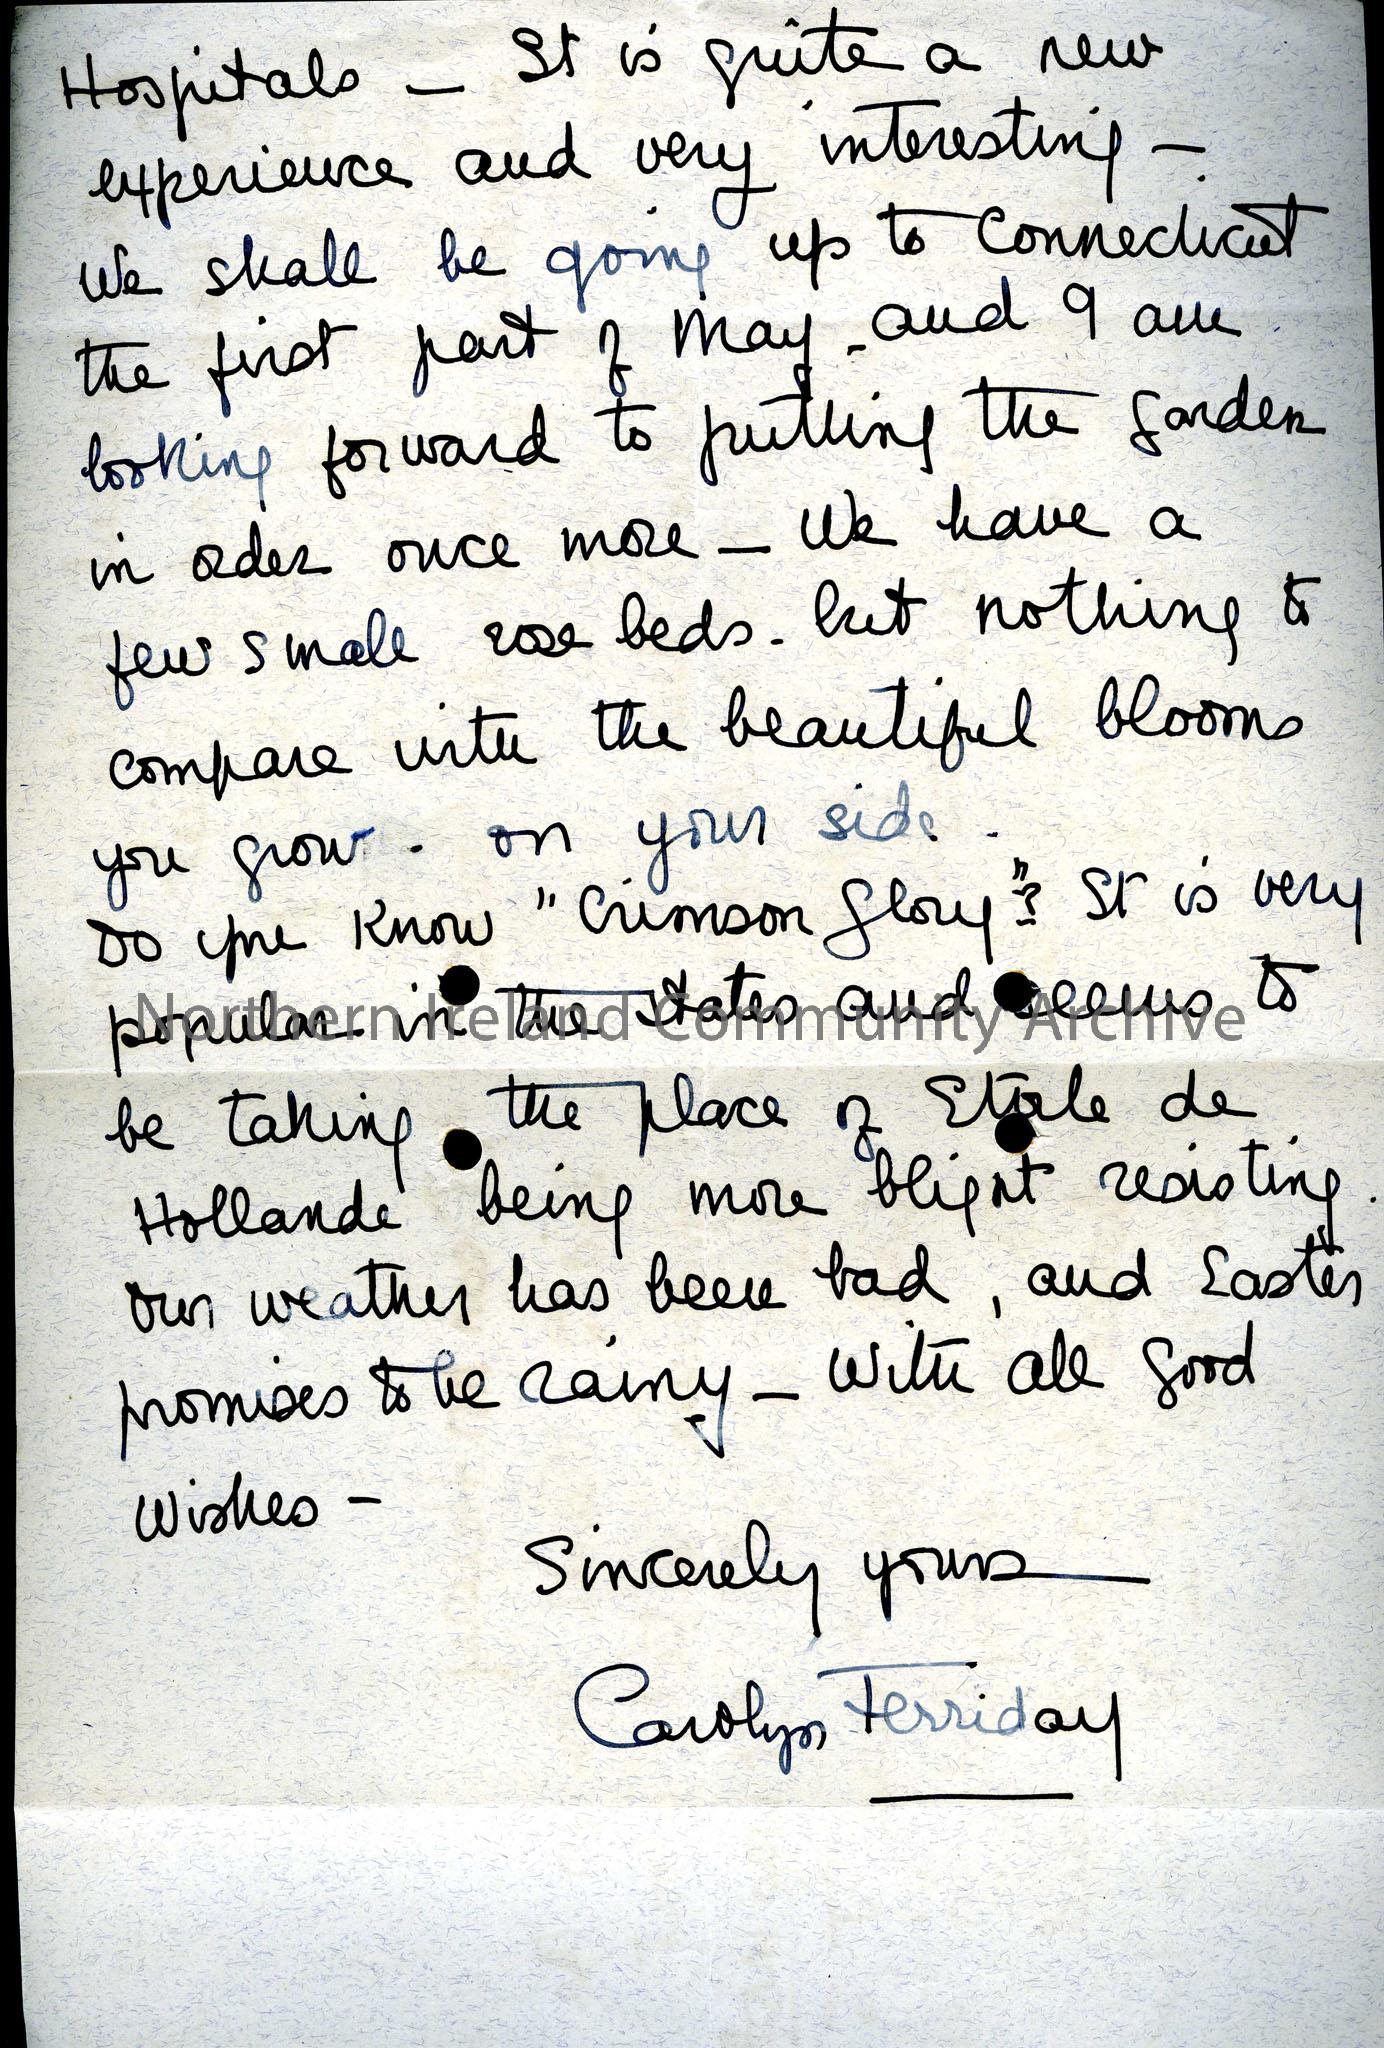 Hospitals — It is quite a new
experience and very interesting —
We shall be going up to Connecticut
the first part of May - and I am
looking forward to putting the garden
in order once more — We have a
few small rose beds - but nothing to
compare with the beautiful blooms
you grow - on your side -
Do you know "Crimson Glory"? It is very
popular in the States and seems to
Northern Ireland Community Archive
be taking the place of Etoile de
Hollande being more blight resisting.
Our weather has been bad, and Easter
promises to be rainy — With all good
Wishes —
Sincerely yours
Carolyn Ferriday